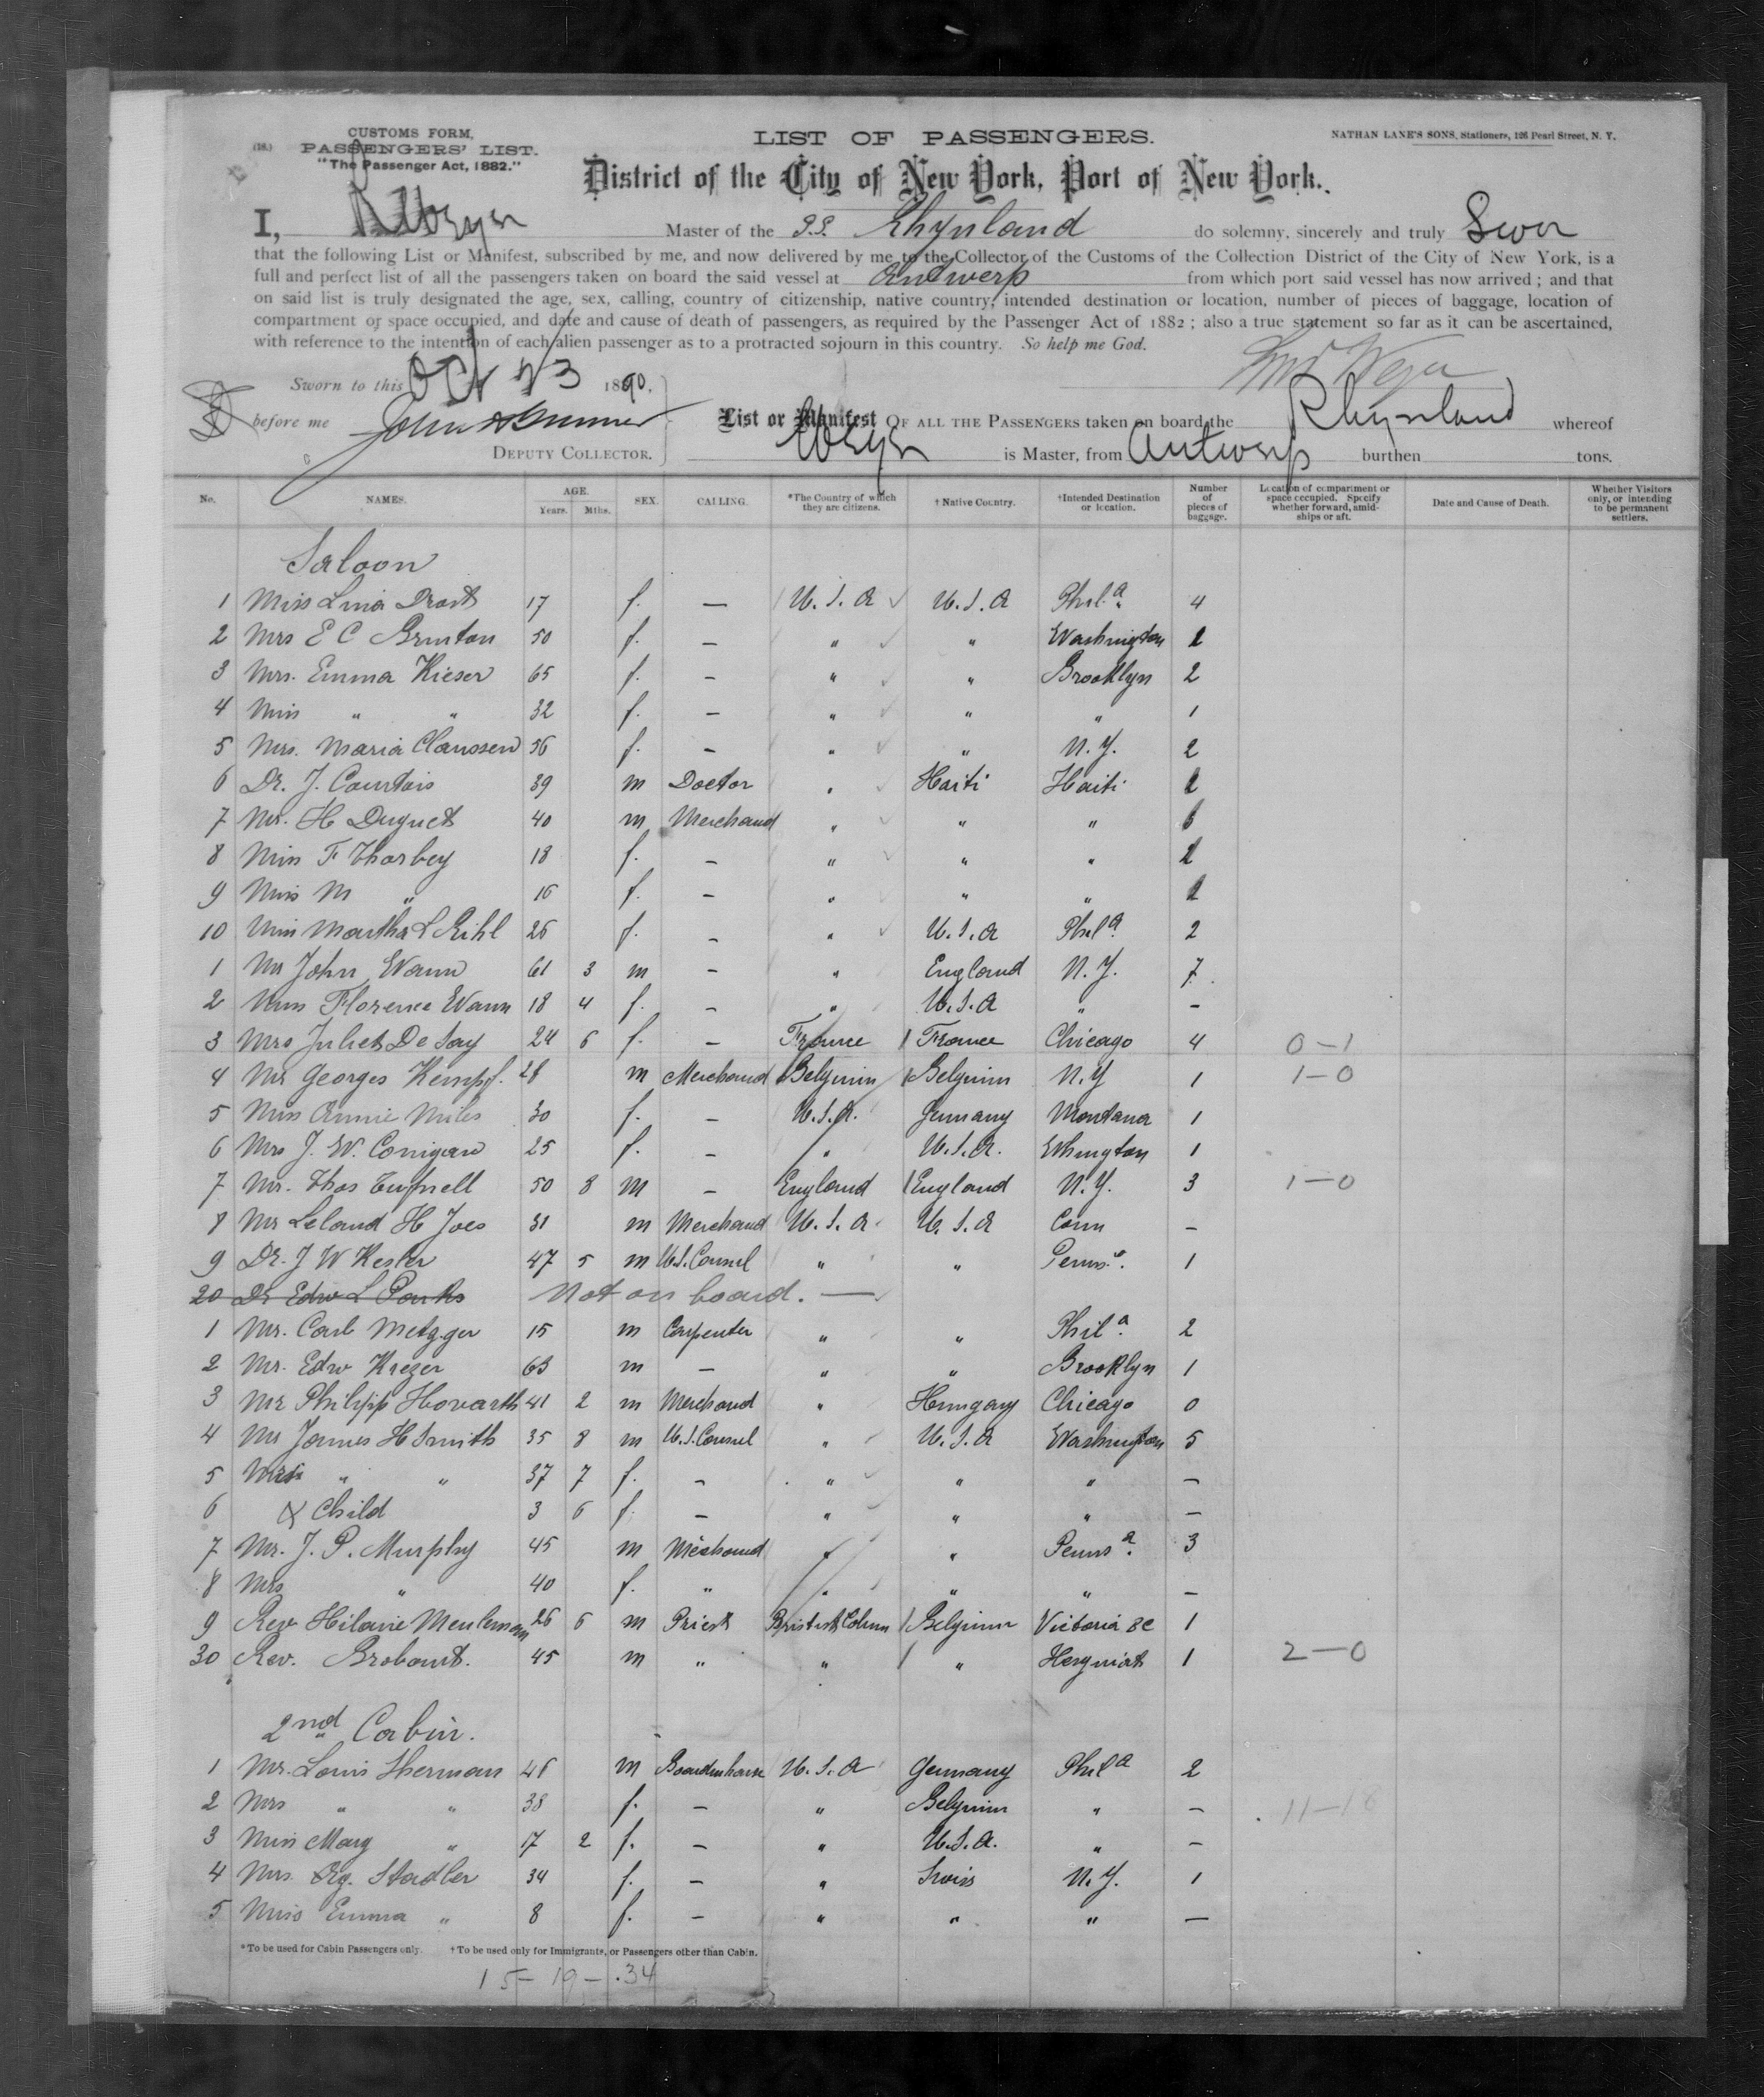 (18.) CUSTOMS FORM,
PASSENGERS' LIST.
"The Passenger Act, 1882."
LIST OF PASSENGERS.
NATHAN LANE'S SONS, Stationers, 126 Pearl Street, N. Y.
District of the City of New York, Port of New York.
I, Master of the S.S. Rhynland do solemny, sincerely and truly Swer
that the following List or Manifest, subscribed by me, and now delivered by me to the Collector of the Customs of the Collection District of the City of New York, is a
full and perfect list of all the passengers taken on board the said vessel at Antwerp from which port said vessel has now arrived ; and that
on said list is truly designated the age, sex, calling, country of citizenship, native country, intended destination or location, number of pieces of baggage, location of
compartment or space occupied, and date and cause of death of passengers, as required by the Passenger Act of 1882 ; also a true statement so far as it can be ascertained,
with reference to the intention of each alien passenger as to a protracted sojourn in this country. So help me God.
Sworn to this Oct 23 1890.
before me John
DEPUTY COLLECTOR.
List or Manifest OF ALL THE PASSENGERS taken on board the Rhynland whereof
is Master, from Antwerp burthen tons.
No. NAMES. AGE. Years. Mths. SEX. CALLING. *The Country of which they are citizens. † Native Country. †Intended Destination or location. Number of pieces of baggage. Location of compartment or space occupied. Specify whether forward, amidships or aft. Date and Cause of Death. Whether Visitors only, or intending to be permanent settlers.
Saloon
1 Miss Lina 17 f. — U.S.A U.S.A Phil.a 4
2 Mrs E C Brinton 50 f. — " " Washington
3 Mrs. Emma Kieser 65 f. — " " Brooklyn 2
4 Miss " " 32 f. — " " " 1
5 Mrs. Maria Claussen 56 f. — " " N.Y. 2
6 Dr. J. Courtois 39 m Doctor " Haiti Haiti
7 Mr. H Duquet 40 m Merchand " " "
8 Miss F Thorbey 18 f. — " " "
9 Miss M " 16 f. — " " "
10 Miss Martha L Rihl 26 f. — " U.S.A Phila. 2
1 Mr John Wann 61 3 m — " England N.Y. 7
2 Miss Florence Wann 18 4 f. — " U.S.A " —
3 Mrs Juliet De Say 24 6 f. — France France Chicago 4 0-1
4 Mr Georges Kempf. 28 m Merchand Belgium Belgium N.Y 1 1-0
5 Miss Annie Miles 30 f. — U.S.A. Germany Montana 1
6 Mrs J. W. Corrigan 25 f. — " U.S.A. 1
7 Mr. Thos Tufnell 50 8 m — England England N.Y. 3 1-0
8 Mr Leland H Joes 31 m Merchand U.S.A U.S.A Conn —
9 Dr. J W Kester 47 5 m U.S. Consul " " Penns. 1
20 Dr Edw L Parks Not on board. —
1 Mr. Carl Metzger 15 m Carpenter " " Phila. 2
2 Mr. Edw Krezer 63 m — " " Brooklyn 1
3 Mr Philipp Hovarth 41 2 m Merchand " Hungary Chicago 0
4 Mr James H Smith 35 8 m U.S. Consul " U.S.A Washington 5
5 Mrs " " 37 7 f. — " " " —
6 & Child 3 6 f. — " " " —
7 Mr. J. P. Murphy 45 m Merchand " " Penns a. 3
8 Mrs " 40 f. " " " " —
9 Rev Hilaire Meuleman 26 6 m Priest British Colum Belgium Victoria BC 1
30 Rev. Brabant. 45 m " " " Hesquiat 1 2-0
2nd Cabin.
1 Mr. Louis Sherman 46 m U.S.A Germany Phila 2
2 Mrs " " 38 f. — " Belgium " —
3 Miss Mary " 17 2 f. — " U.S.A. " —
4 Mrs. Stadler 34 f. — " Swiss N.Y. 1
5 Miss Emma " 8 f. — " " " —
*To be used for Cabin Passengers only. †To be used only for Immigrants, or Passengers other than Cabin.
15-19-.34